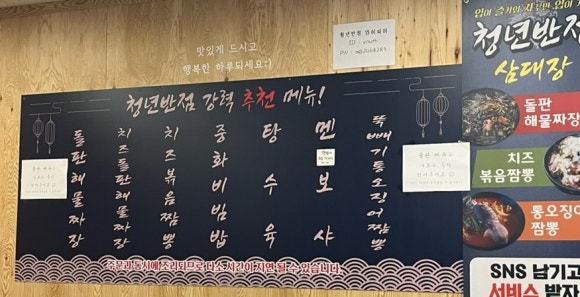 맛있게 드시고
행복한 하루되세요:)
청년반점 와이파이
청년반점 강력 추천 메뉴!
돌판해물짜장
치즈돌판해물짜장
치즈볶음짬뽕
중화비빔밥
탕수육
멘보샤
뚝배기통오징어짬뽕
주문과 동시에 조리되므로 다소 시간이 지연 될 수 있습니다.
청년반점
삼대장
돌판
해물짜장
치즈
볶음짬뽕
통오징어
짬뽕
SNS 남기고
서비스 받자